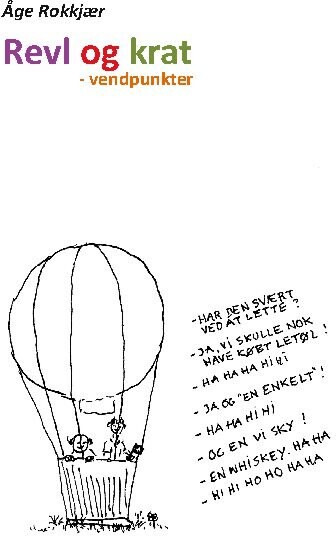 Åge Rokkjær
Revl og krat
- vendpunkter
- HAR DEN SVÆRT
VED AT LETTE ?
- JA, VI SKULLE NOK
HAVE KØBT LETØL !
- HA HA HA HI HI
- JA OG "EN ENKELT" !
- HA HA HI HI
- OG EN VI SKY !
- EN WHISKEY. HA HA
- HI HI HO HO HA HA